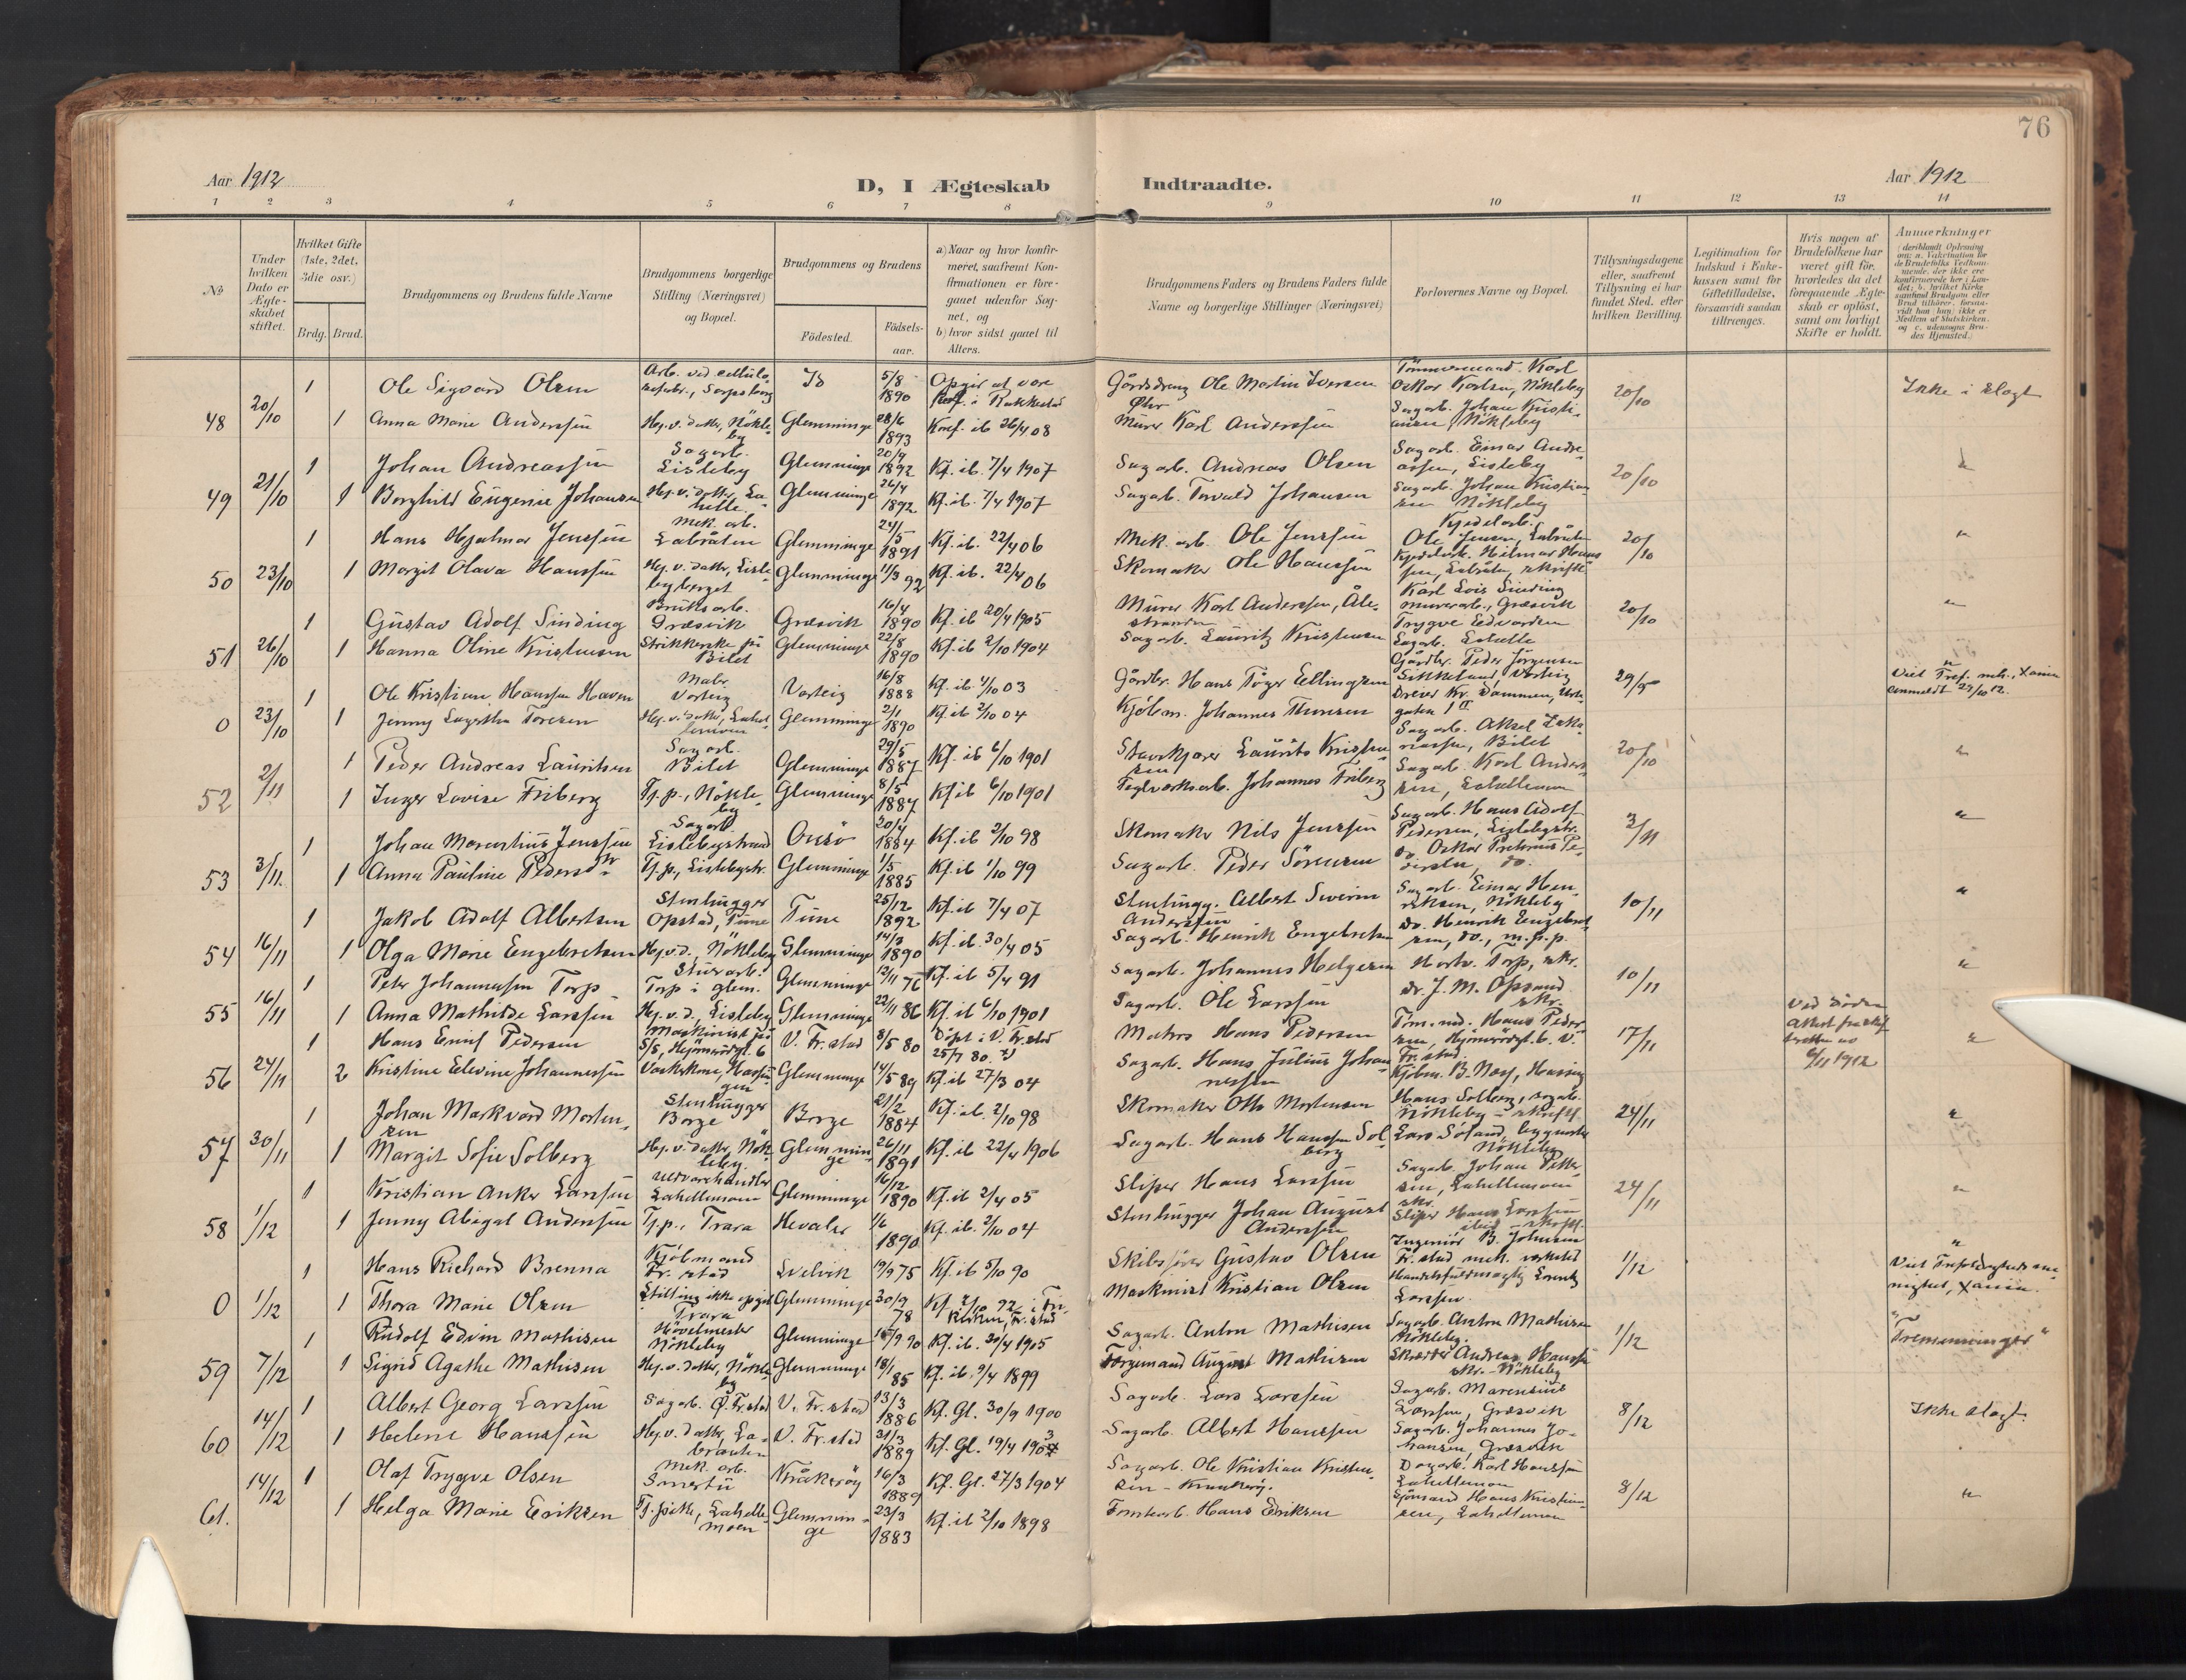 76
Aar 1912
D, I Ægteskab
Indtraadte.
Aar 1912
1 2 3 4 5 6 7 8 9 10 11 12 13 14
No
Under hvilken Dato er Ægteskabet stiftet.
Hvilket Gifte (1ste, 2det, 3die osv.)
Brdg. Brud.
Brudgommens og Brudens fulde Navne
Brudgommens borgerlige Stilling (Næringsvei) og Bopæl.
Brudgommens og Brudens
Födested.
Födselsaar.
a) Naar og hvor konfirmeret, saafremt Konfirmationen er foregaaet udenfor Sognet, og
b) hvor sidst gaaet til Alters.
Brudgommens Faders og Brudens Faders fulde Navne og borgerlige Stillinger (Næringsvei)
Forlovernes Navne og Bopæl.
Tillysningsdagene eller, saafremt Tillysning ei har fundet Sted, efter hvilken Bevilling.
Legitimation for Indskud i Enkekassen samt for Giftetilladelse, forsaavidt saadan tiltrænges.
Hvis nogen af Brudefolkene har været gift för, hvorledes da det foregaaende Ægteskab er oplöst, samt om lovligt Skifte er holdt.
Anmærkninger
48 20/10
1 Ole Sigvard Olsen Arb. ved cellulosefabr., Sarpsborg Id 5/8 1890 Opgir at være konf. i Rakkestad Gårdsdreng Ole Martin Iversen Øhr Tömmermand Karl Oskar Karlsen, Nökleby 20/10 Ikke i slægt
1 Anna Marie Anderssen Hej. v. datter, Nökleby Glemminge 28/6 1893 Konf. ib 26/4 08 Murer Karl Anderssen Sagarb. Johan Kristiansen, Nökleby
49 21/10
1 Johan Andreassen Sagarb. Lisleby Glemminge 20/9 1892 Kf. ib. 7/4 1907 Sagarb. Andreas Olsen Sagarb. Einar Andreassen, Lisleby 20/10 "
1 Borghild Eugenie Johansen Hej. v. datter, Lahelle Glemminge 26/4 1892 Kf. ib. 7/4 1907 Sagarb. Torvald Johansen Sagarb. Johan Kristiansen Nökleby
50 23/10
1 Hans Hjalmar Jenssen Mek. arb. Labråten Glemminge 24/5 1891 Kf. ib. 22/4 06 Mek. arb. Ole Jenssen Kjedelarb. Ole Jensen, Labråten 20/10 "
1 Margit Olava Hanssen Hej. v. datter, Lislebyberget Glemminge 11/3 92 Kf. ib. 22/4 06 Skomaker Ole Hanssen Kjedelarb. Hilmar Hanssen, Labråten, skriftl.
51 26/10
1 Gustav Adolf Sinding Bruksarb. Græsvik Græsvik 16/4 1890 Kf. ib 20/4 1905 Murer Karl Anderssen, Ålestranden Karl Lois Sinding murerarb., Græsvik 20/10 "
1 Hanna Oline Kristensen Strikkerske på Bilet Glemminge 22/8 1890 Kf. ib 2/10 1904 Sagarb. Lauritz Kristensen Trygve Edvardsen Sagarb. Lahelle
0 23/10
1 Ole Kristian Hanssen Haven Maler Varteig Varteig 16/8 1888 Kf. ib. 4/10 03 Gårdbr. Hans Töger Ellingsen Gårdbr. Peder Jörgensen Sikkeland, Varteig 29/9 "
1 Jenny Lagertha Toresen Hej. v. datter, Lahellemoen Glemminge 2/1 1890 Kf. ib 2/10 04 Kjöbm. Johannes Thoresen Dreier Kr. Dammen,
52 2/11
1 Peder Andreas Lauritsen Sagarb. Bilet Glemminge 29/5 1887 Kf. ib 6/10 1901 Stuerkjører Laurits Kristensen Sagarb. Aksel Zakariassen, Bilet 20/10 "
1 Inger Lovise Friberg Tj.p., Nökleby Glemminge 8/5 1887 Kf ib 6/10 1901 Teglverksarb. Johannes Friberg Sagarb. Karl Andersen, Lahellemoen
53 3/11.
1 Johan Marentius Jenssen Sagarb. Lislebystrand Onsö 20/4 1884 Kf. ib 2/10 98 Skomaker Nils Jenssen Sagarb. Hans Adolf Pedersen, Lislebystr. 3/11 "
1 Anna Pauline Pedersdtr Tj.p., Lislebystr. Glemminge 1/5 1885 Kf ib 1/10 99 Sagarb. Peder Sörensen do Oskar Pedersen, do.
54 16/11
1 Jakob Adolf Albertsen Stenhugger Opstad, Tune Tune 25/12 1892 Kf. ib 7/4 07 Stenhugg. Albert Severin Anderssen Sagarb. Einar Henriksen, Nökleby 10/11 "
1 Olga Marie Engebretsen Hej. v. d., Nökleby Glemminge 14/3 1890 Kf. ib. 30/4 05 Sagarb. Henrik Engebretsen do. Henrik Engebretsen, do., m.p.p.
55 16/11
1 Peter Johannessen Torp Stuerarb. Torp i Glem. Glemminge 12/11 76 Kf. ib 5/4 91 Sagarb. Johannes Helgesen Hartv. Torp, skr. 10/11 "
1 Anna Mathilde Larssen Hej. v. d., Lisleby Glemminge 22/11 86 Kf. ib 6/10 1901 Sagarb. Ole Larssen dr. J. M. Opsand skr.
56 24/11
1 Hans Emil Pedersen Maskinist på S/S, 6 V. Fr.stad 8/5 80 Döpt i V. Fr.stad 25/7 80. Matros Hans Pedersen Töm.md. Hans Pedersen, 6. V. Fr.stad 17/11 Ved döden Attest fra skifteretten av 6/11 1912 "
2 Kristine Edevine Johannessen Vaskekone, Hassingen Glemminge 14/5 89 Kf. ib 27/3 04 Sagarb. Hans Julius Johannessen Kjöbm. B. Næss, Hassing
57 30/11
1 Johan Markvard Mortensen Stenhugger Borge Borge 21/2 1884 Kf. ib. 2/10 98 Skomaker Otto Mortensen Hans Solberg, sagarb. Nökleby - skriftl. 24/11 "
1 Margit Sofie Solberg Hej. v. datter, Nökleby Glemminge 26/11 1891 Kf. ib 22/4 1906 Sagarb. Hans Hanssen Solberg Lars Söland, Nökleby
58 1/12
1 Kristian Anker Larssen Lahellemoen Glemminge 16/12 1890 Kf. ib 2/4 05 Sliper Hans Larssen Sagarb. Johan Pettersen, Lahellemoen skr. 24/11 "
1 Jenny Abigal Anderssen Tj.p., Trara Hvaler 1/6 1890 Kf. ib. 2/10 04 Stenhugger Johan August Anderssen Sliper Hans Larssen ibid - skriftl.
0 1/12
1 Hans Richard Brenna Kjöbmand Fr.stad Svelvik 19/9 75 Kf. ib 5/10 90 Skibsförer Gustav Olsen Ingeniör B. Johnsen Fr.stad mek. verksted 1/12 "
1 Thora Marie Olsen Stilling ikke opgit Trara Glemminge 30/9 78 Kf. 2/10 92 i Fr.kirken, Fr.stad Maskinist Kristian Olsen Handelsfuldmægtig Lorentz Larssen
59 7/12
1 Rudolf Edvin Mathisen Hövelmester Nökleby Glemminge 15/9 90 Kf. ib. 30/4 1905 Sagarb. Anton Mathisen Sagarb. Anton Mathisen Nökleby. 1/12 "Tremenninger"
1 Sigrid Agathe Mathisen Hej. v. datter, Nökleby Glemminge 18/1 85 Kf. ib. 9/4 1899 Færgemand August Mathisen Skrædder Andreas Hanssen skr. - Nökleby
60 14/12
1 Albert Georg Larssen Sagarb. Ø. Fr.stad V. Fr.stad 13/3 1886 Kf. Gl. 30/9 1900 Sagarb. Lars Larssen Sagarb. Marensius Larssen, Græsvik 8/12 Ikke slægt.
1 Helene Hanssen Hej. v. datter, Labraaten V. Fr.stad 31/3 1889 Kf. Gl. 19/4 1903 Sagarb. Albert Hanssen Sagarb. Johannes Johansen, Græsvik
61. 14/12
1 Olaf Trygve Olsen Mek. arb. Smertu Kråkeröy 16/3 1889 Kf. Gl. 27/3 1904 Sagarb. Ole Kristian Kristensen - Kraakeröy. Dagarb. Karl Hanssen Lahellemoen 8/12 "
1 Helga Marie Eriksen Tj.pike, Lahellemoen Glemminge 23/3 1883 Kf. ib 2/10 1898 Tomtearb. Hans Eriksen Sjömand Hans Kristiansen, Lahellemoen